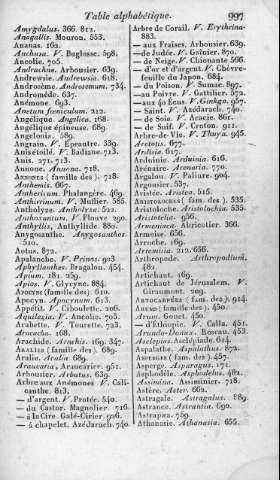 Table alphabétique. 997
Amygdalus. 366. 812.
Anagallis. Mouron. 553.
Ananas. 162.
Anchusa. V. Buglosse. 598.
Ancolie. 705.
Andrachne. Arbousier. 639.
Andrewyie. Andreusia. 618.
Androsème. Androsemum. 734.
Andromède. 637.
Anémone. 693.
Anethum fœniculum. 212.
Angélique. Angelica. 168.
Angélique épineuse. 689.
Angolonie. 589.
Angrain. V. Epeautre. 339.
Anis étoilé. V. Badiane. 713.
Anis. 271. 713.
Annone. Anona. 718.
Anones (famille des). 718.
Anthemis. 667.
Antheric. Phalangère. 469.
Antirrinum. V. Muflier. 585.
Antholyze. Antholyza. 522.
Anthoxantum. V. Flouve. 290.
Anthyllis. Anthyllide. 880.
Anygosanthe. Anygosanthos.
510.
Aotus. 872.
Apalanche. V. Prinos. 923
Aphyllanthes. Bragalou. 454.
Apium. 181. 259.
Apios. V. Glycyne. 884.
Apocyns (famille des). 610.
Apocyn. Apocynum. 613.
Appétit. V. Ciboulette. 206.
Aquilegia. V. Ancolie. 705.
Arabette. V. Tourette. 723.
Aracacha. 168.
Arachide. Arachis. 169. 347.
Aralies (famille des). 689.
Aralie. Aralia. 689.
Araucaria. Araucarier. 951.
Arbousier. Arbutus. 639.
Arbre aux Anémones V. Cali-
canthe. 813.
— d'argent. V. Protée. 540.
— du Castor. Magnolier. 716.
— à la Cire. Galé-Cirier. 926.
— à chapelet. Azédarach. 740
Arbre de Corail. V. Erythrina.
883.
— aux Fraises. Arbousier. 639.
— de Judée. V. Gainier. 870.
— de Neige. V. Chionante 566.
— d'or et d'argent. V. Chèvre-
feuille du Japon. 684.
— du Poison. V. Sumac. 897.
— au Poivre. V. Gattilier. 572.
— aux 40 écus. V. Ginkgo. 957.
— Saint. V. Azédarach. 740.
— de Soie. V. Acacie. 861.
— de Suif. V. Croton. 911.
Arbre-de-Vie. V. Thuya. 945.
Arctotis. 677.
Ardisia. 617.
Arduinie. Arduinia. 616.
Arénaire. Arenaria. 770.
Argalou. V. Paliure. 904.
Argousier. 537.
Aristée. Aristea. 515.
Aristoloches (fam. des). 535.
Aristoloche. Aristolochia. 535.
Aristotelia. 956.
Armeniaca. Abricotier. 366.
Armoise. 656.
Arroche. 169.
Artemisia. 215. 656.
Arthropode. Arthropodium.
482.
Artichaut. 169.
Artichaut de Jérusalem. V.
Giraumont. 209.
Artocarpées (fam. des). 914.
Arums (famille des). 450.
Arum. Gouet. 450.
— d'Éthiopie. V. Calla. 451.
Arundo-Donax. Roseau. 453.
Asclépias. Asclépiade. 614.
Aspalathe. Aspalathus. 870.
Asperges (fam. des). 457.
Asperge. Asparagus. 171.
Asphodèle. Asphodelus. 481.
Assimina. Assiminier. 718.
Astère. Aster. 662.
Astragale. Astragalus. 889.
Astrance. Astrantia. 690.
Astrapæa. 759.
Athanasie. Athanasia. 655.